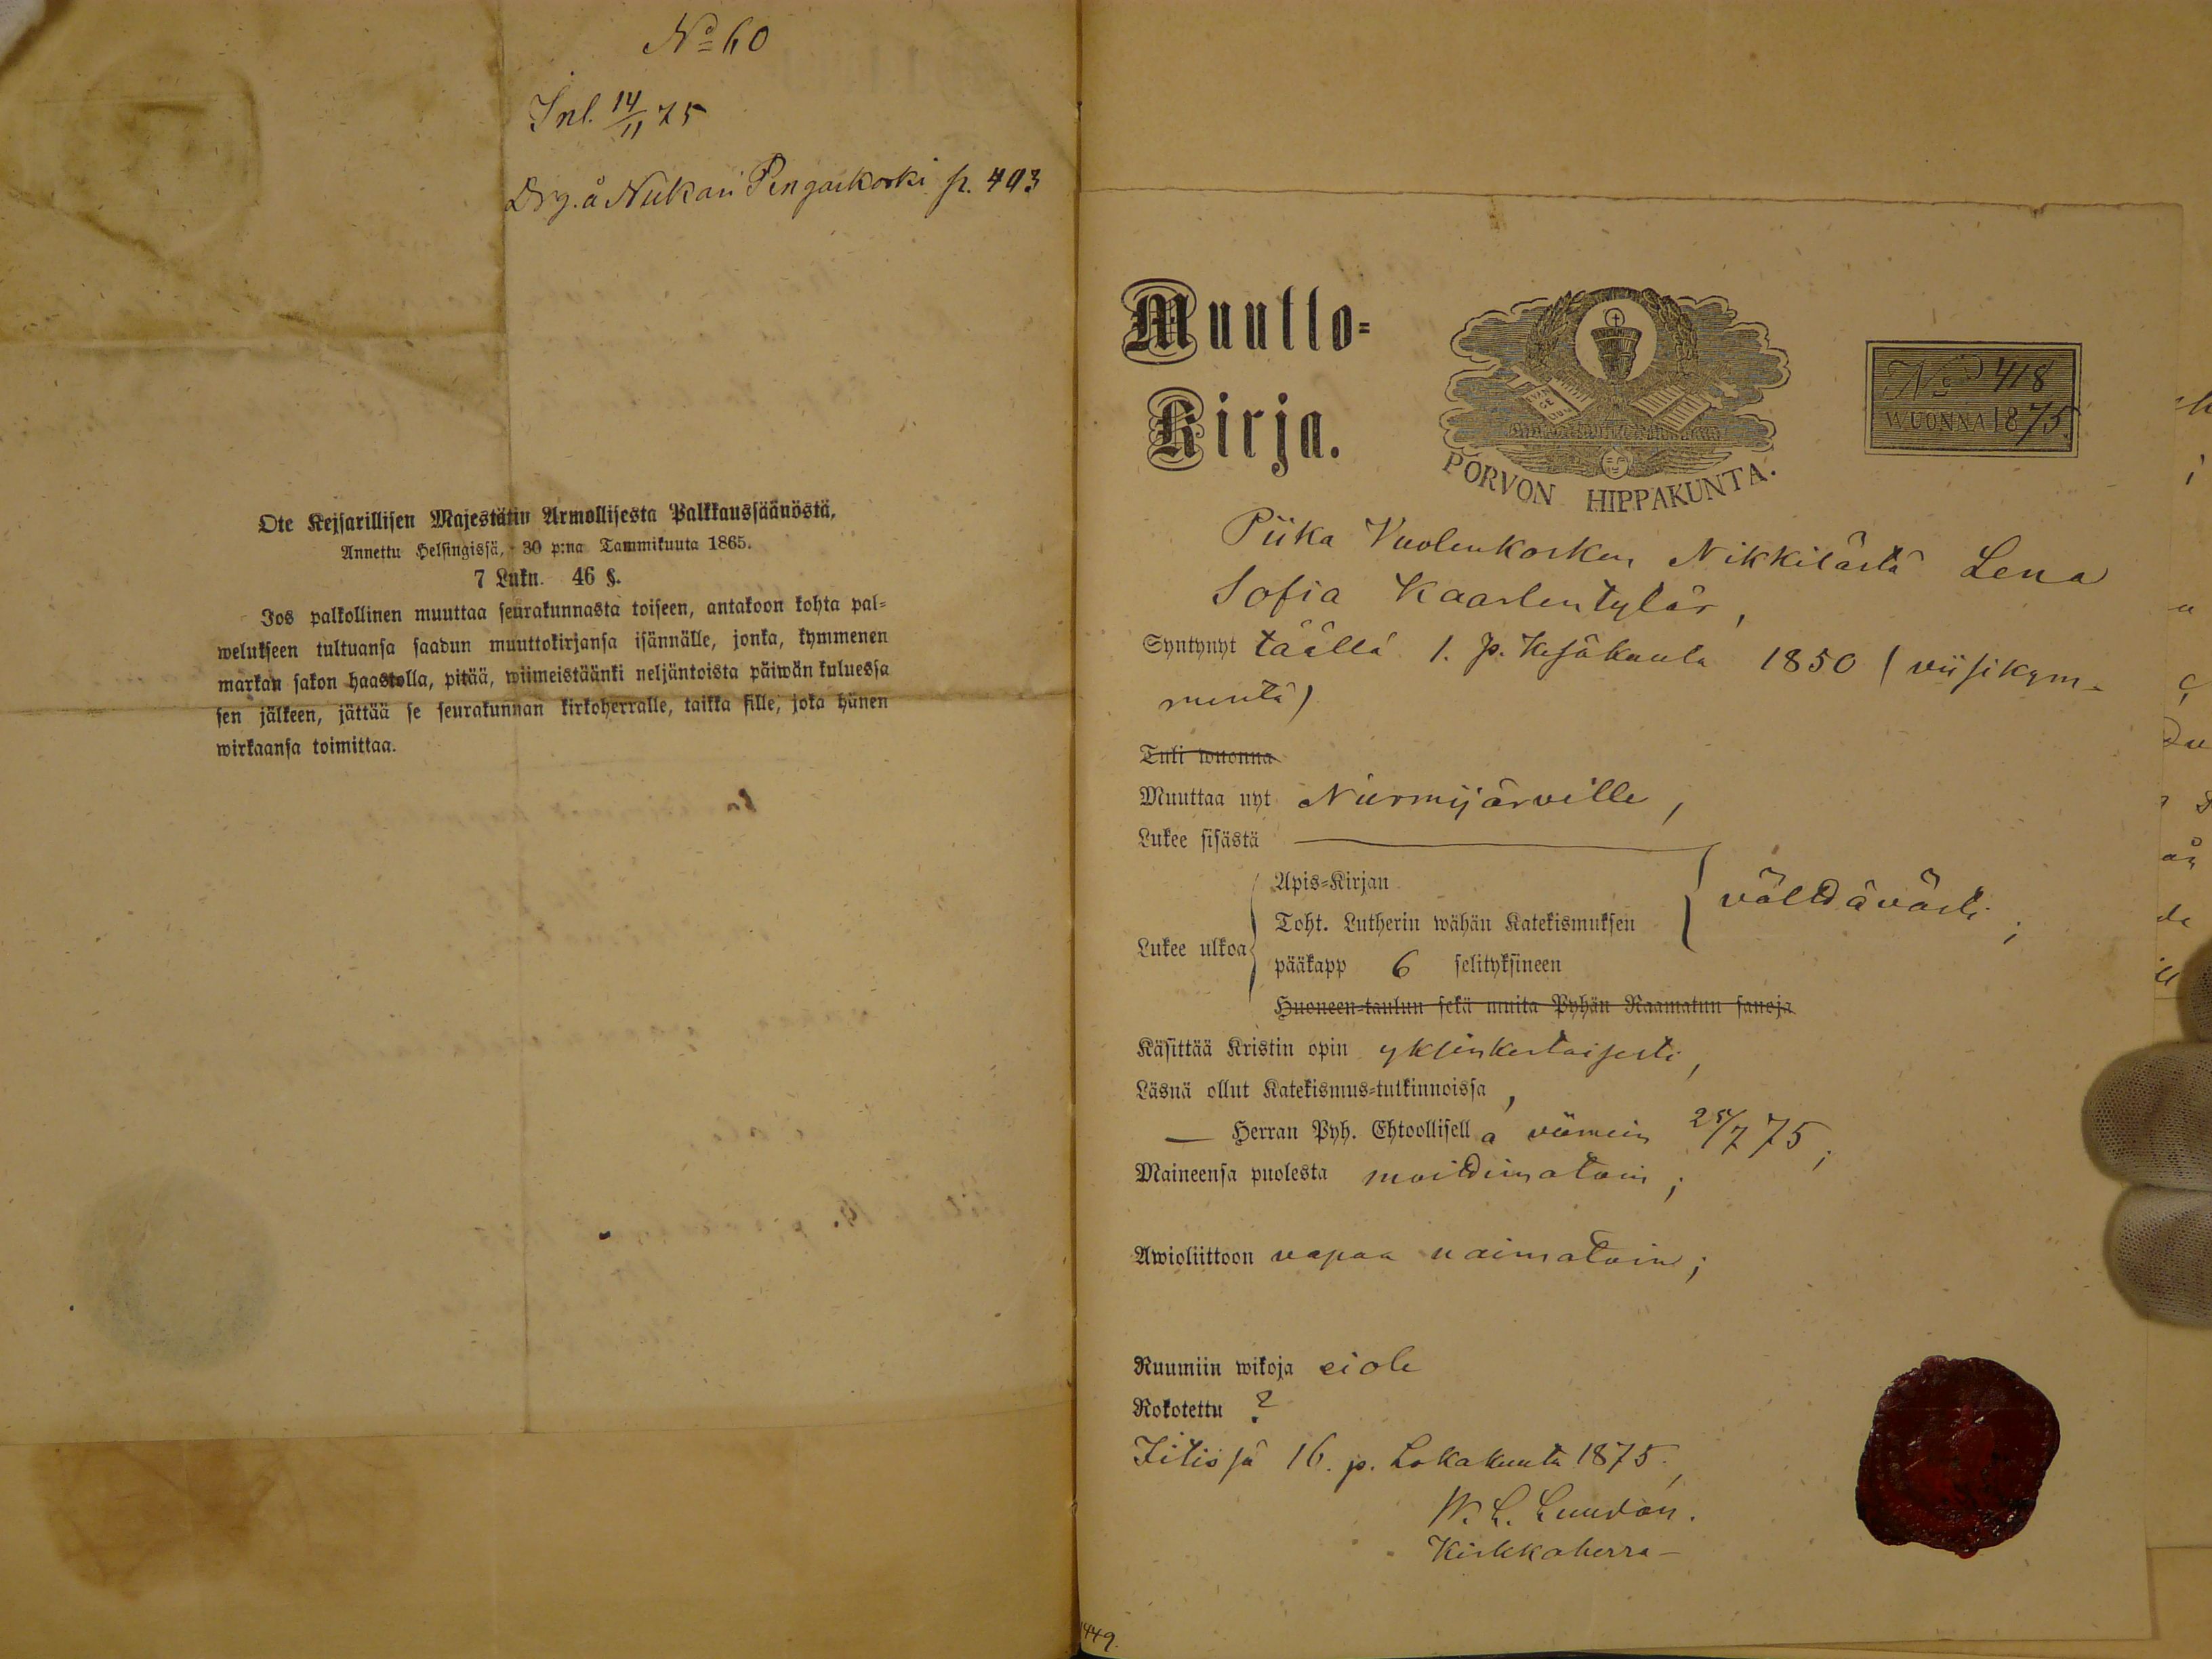 No 60
Inl. 14/11 75
Drg. å Nukari Pengarkoski p. 493
Ote Kejsarillisen Majestätin Armollisesta Palkkaussäänöstä,
Annettu Helsingissä, 30 p:na Tammikuuta 1865.
7 Luku. 46 §.
Jos palkollinen muuttaa seurakunnasta toiseen, antakoon kohta pal-
welukseen tultuansa saadun muuttokirjansa isännälle, jonka, kymmenen
markan sakon haastolla, pitää, wiimeistäänki neljäntoista päiwän kuluessa
sen jälkeen, jättää se seurakunnan kirkoherralle, taikka sille, joka hänen
wirkaansa toimittaa.
Muutto-
Kirja.
EVAN
GE
LIUM
PORVON HIPPAKUNTA.
No 418
WUONNA 1875
Piika Vuolenkosken Nikkilästä Lena
Sofia Kaarlentytär,
Syntynyt täällä 1. p. Kesäkuuta 1850 (viisikym-
mentä)
Tuli wuonna
Muuttaa nyt Nurmijärville,
Lukee sisästä
Apis-Kirjan
Toht. Lutherin wähän Katekismuksen
Lukee ulkoa
pääkapp 6 selityksineen
välttävästi;
Huoneen-taulun sekä muita Pyhän Raamatun sanoja
Käsittää Kristin opin yksinkertaisesti,
Läsnä ollut Katekismus-tutkinnoissa,
— Herran Pyh. Ehtoollisella viimein 25/7 75;
Maineensa puolesta moittimatoin;
Awioliittoon vapaa naimatoin;
Ruumiin wikoja ei ole
Rokotettu ?
Iitissä 16. p. Lokakuuta 1875.
Kirkkoherra
449.